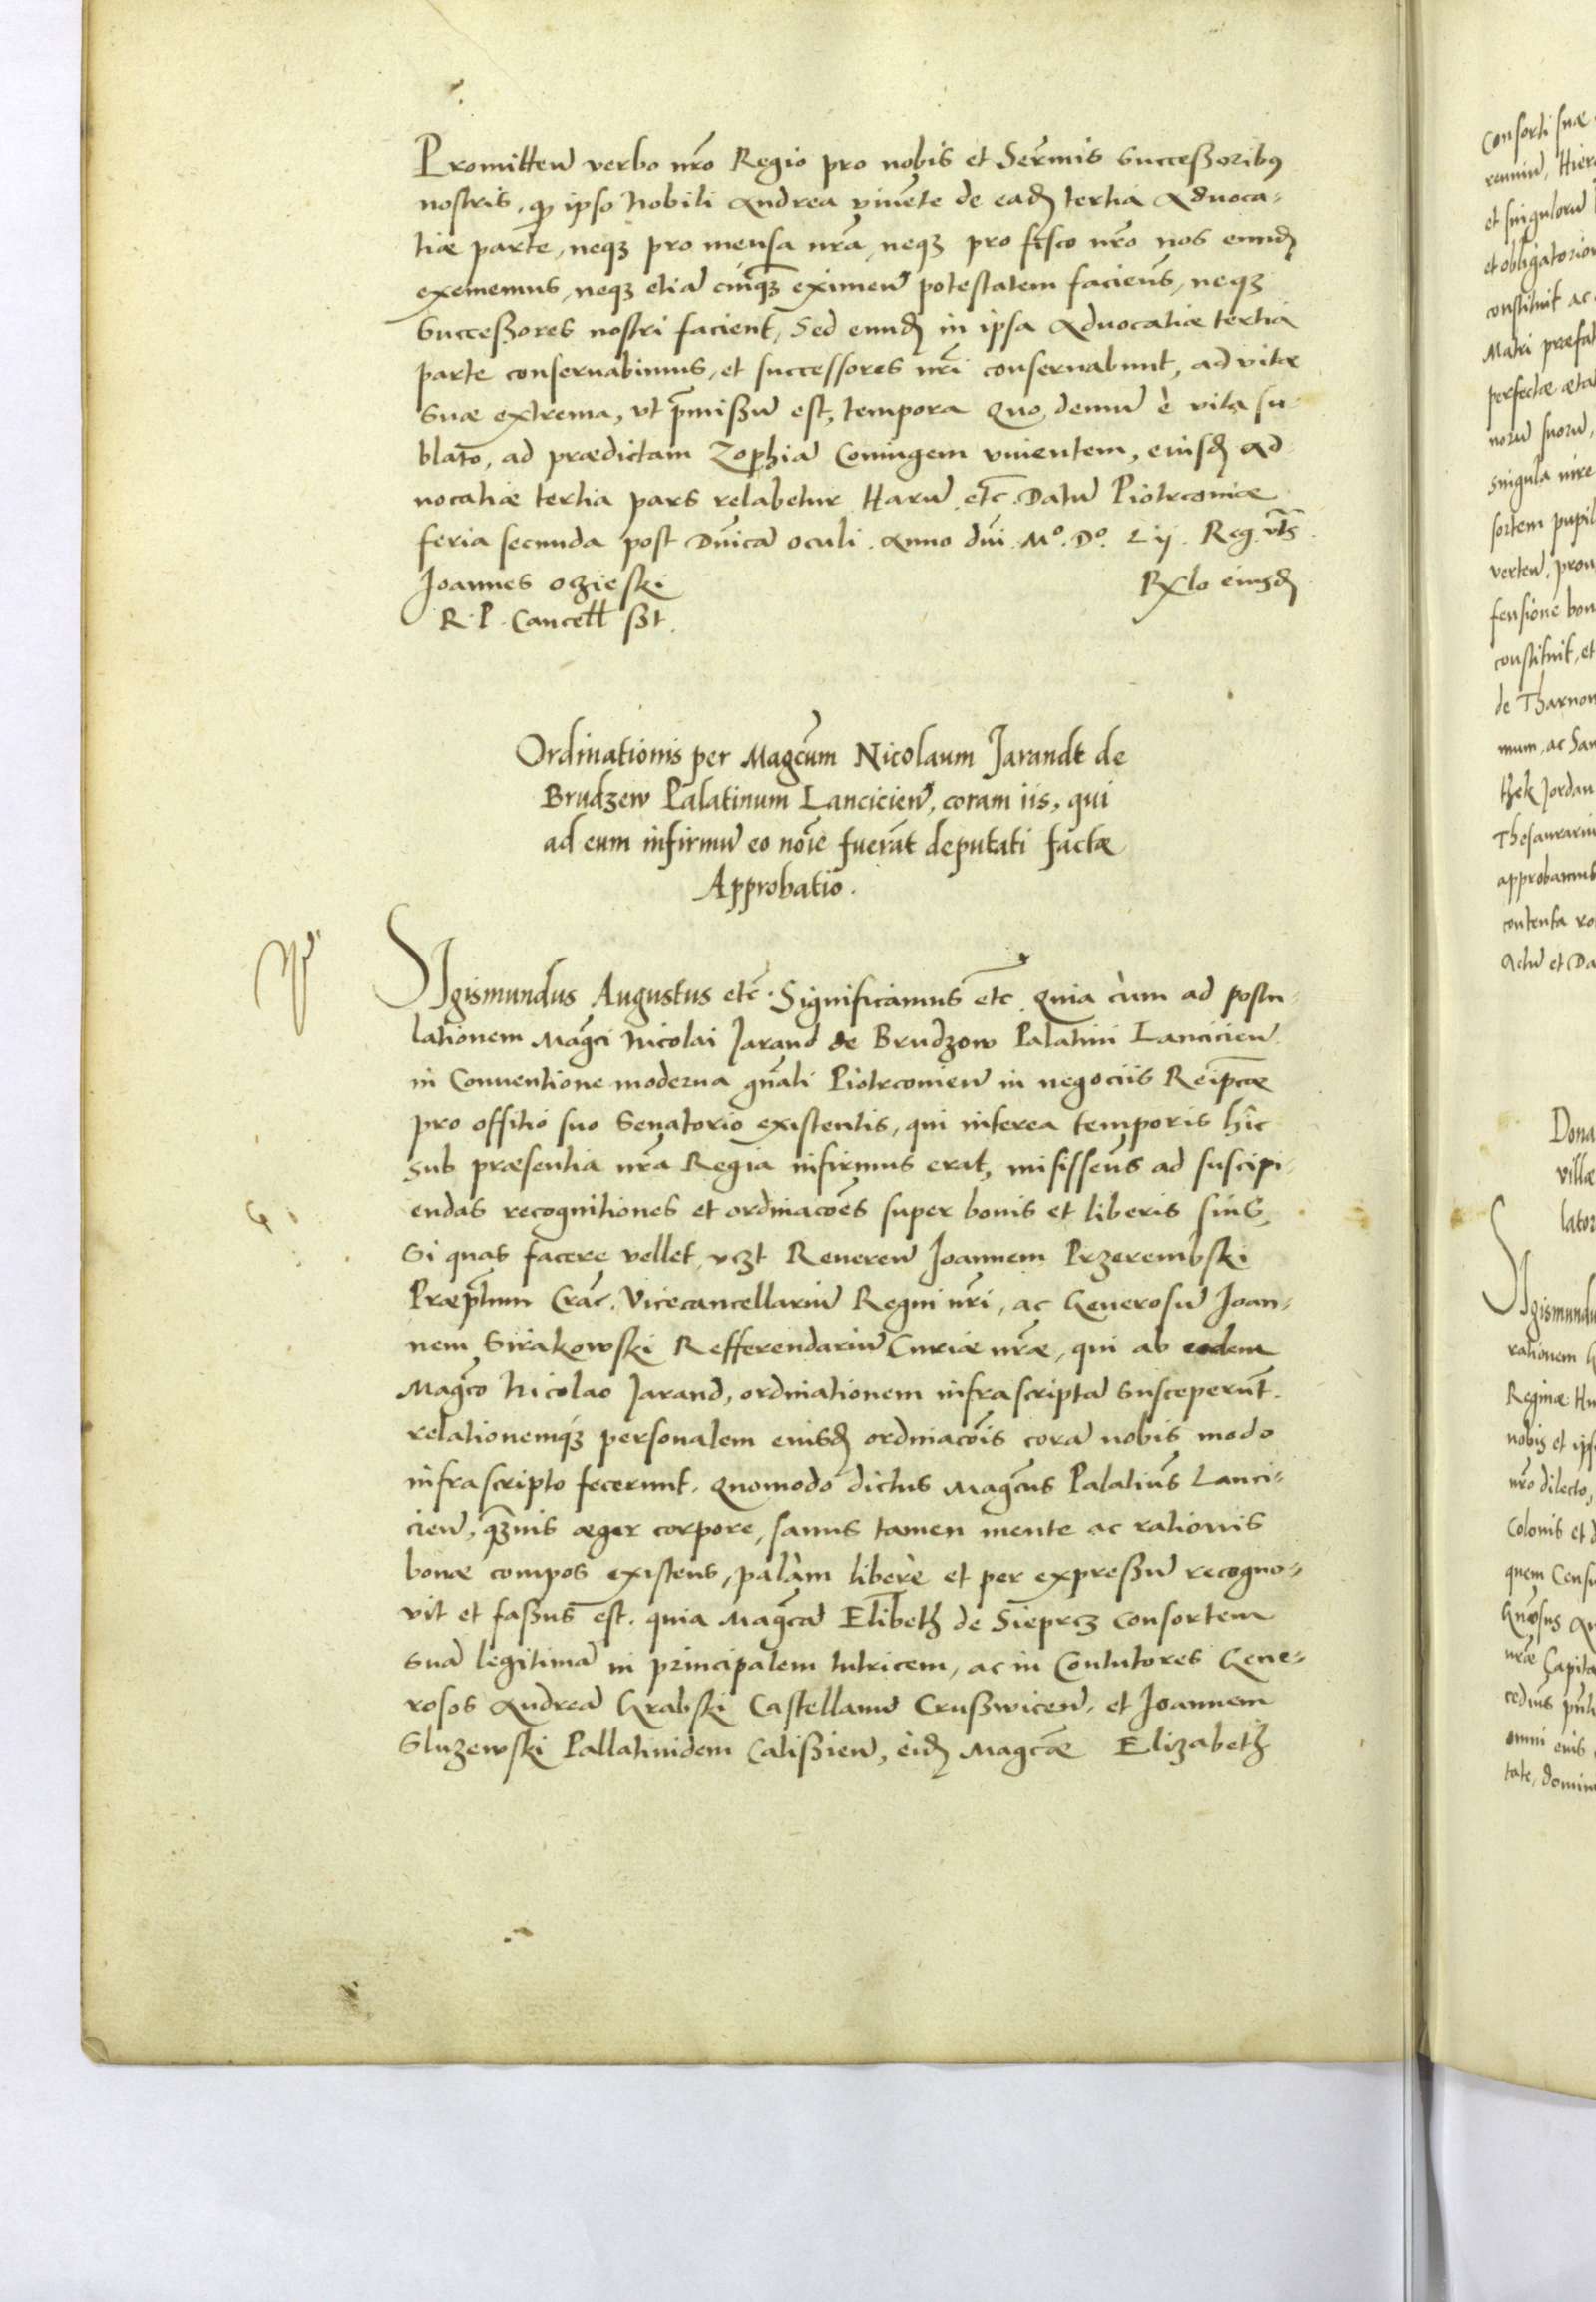 Promitteñ verbo nr̃o Regio pro nobis et Serm̃is Successoribus
nostris, q ipso Nobili Andrea viuẽte de eadẽ tertia Aduoca-
tiæ parte, neq3 pro mensa nr̃a, neq3 pro fisco nr̃o nos eundẽ
eximemus, neq3 etiã cuiq3 eximeñ potestatem faciem⁹, neq3
Successores nostri facient, Sed eundẽ in ipsa Aduocatiæ tertia
parte conseruabimus, et successores nr̃i conseruabunt, ad vitæ
suæ extrema, vt p̃missũ est, tempora Quo demũ è vita su
blato, ad prædictam Zophiã Coniugem viuentem, eiusdẽ Ad
uocatiæ tertia pars relabetur Harũ etc̃. Datũ Piotrcouiæ
feria secunda post Dñicã oculi. Anno dñi. M°. D°. Lij. Reg. vts
Joannes oczieski
Rxlo eiusdẽ
R. P. Cancell sst.
Ordinationis per Magc̃um Nicolaum Jarandt de
Brudzew Palatinum Lancicieñ, coram iis, qui
ad eum infirmũ eo noĩe fuerãt deputati factæ
Approbatio.
SIgismundus Augustus etc̃. Significamus etc̃. Quia cùm ad postu-
lationem Magc̃i Nicolai Jarand de Brudzow Palatini Lancicieñ
in Conuentione moderna gñali Piotrcouieñ in negociis Reipcæ
pro offitio suo Senatorio existentis, qui interea temporis hîc
sub præsentia nr̃a Regia infirmus erat, misissem⁹ ad suscipi-
endas recognitiones et ordinacões super bonis et liberis suis,
Si quas facere vellet, vczt Reuereñ Joannem Przerembski
Præp̃tum Crac̃. Vicecancellariũ Regni nr̃i, ac Generosũ Joan-
nem Sirakowski Refferendariũ Curiæ nr̃æ, qui ab eodem
Magc̃o Nicolao Jarand, ordinationem infrascriptã susceperũt.
relationemq́3 personalem eiusdẽ ordinacõis corã nobis modo
infrascripto fecerunt. Quomodo dictus Magc̃us Palatin⁹ Lanci-
cieñ, q̃3uis æger corpore, sanus tamen mente ac rationis
bonæ compos existens, palàm liberè et per expressũ recogno-
vit et fassus est. quia Magc̃ã Elibeth de Sieprcz Consortem
suã legitimã in principalem tutricem, ac in Contutores Gene-
rosos Andreã Krabski Castellanũ Crusswiceñ. et Joannem
Sluzewski Pallatinidem Calissieñ, eidẽ Magc̃æ Elizabeth
Consorti suæ
et singulorũ
et obligatorior
constituit ac
Matri præfat
perfectæ æta
norũ suorũ,
singula
sortem pupil
verteñ,
fensione bon
constituit, et
de Tharnow
mum, ac San
thek Jordan
Thesaurariũ
approbamus
contenta
Actũ et Da
Dona
villæ
lator
SIgismundu
rationem
Reginæ Hu
nobis et ips
nr̃o dilecto,
Colonis et
quem Censu
nr̃æ Capita
omni eius
tate, domin